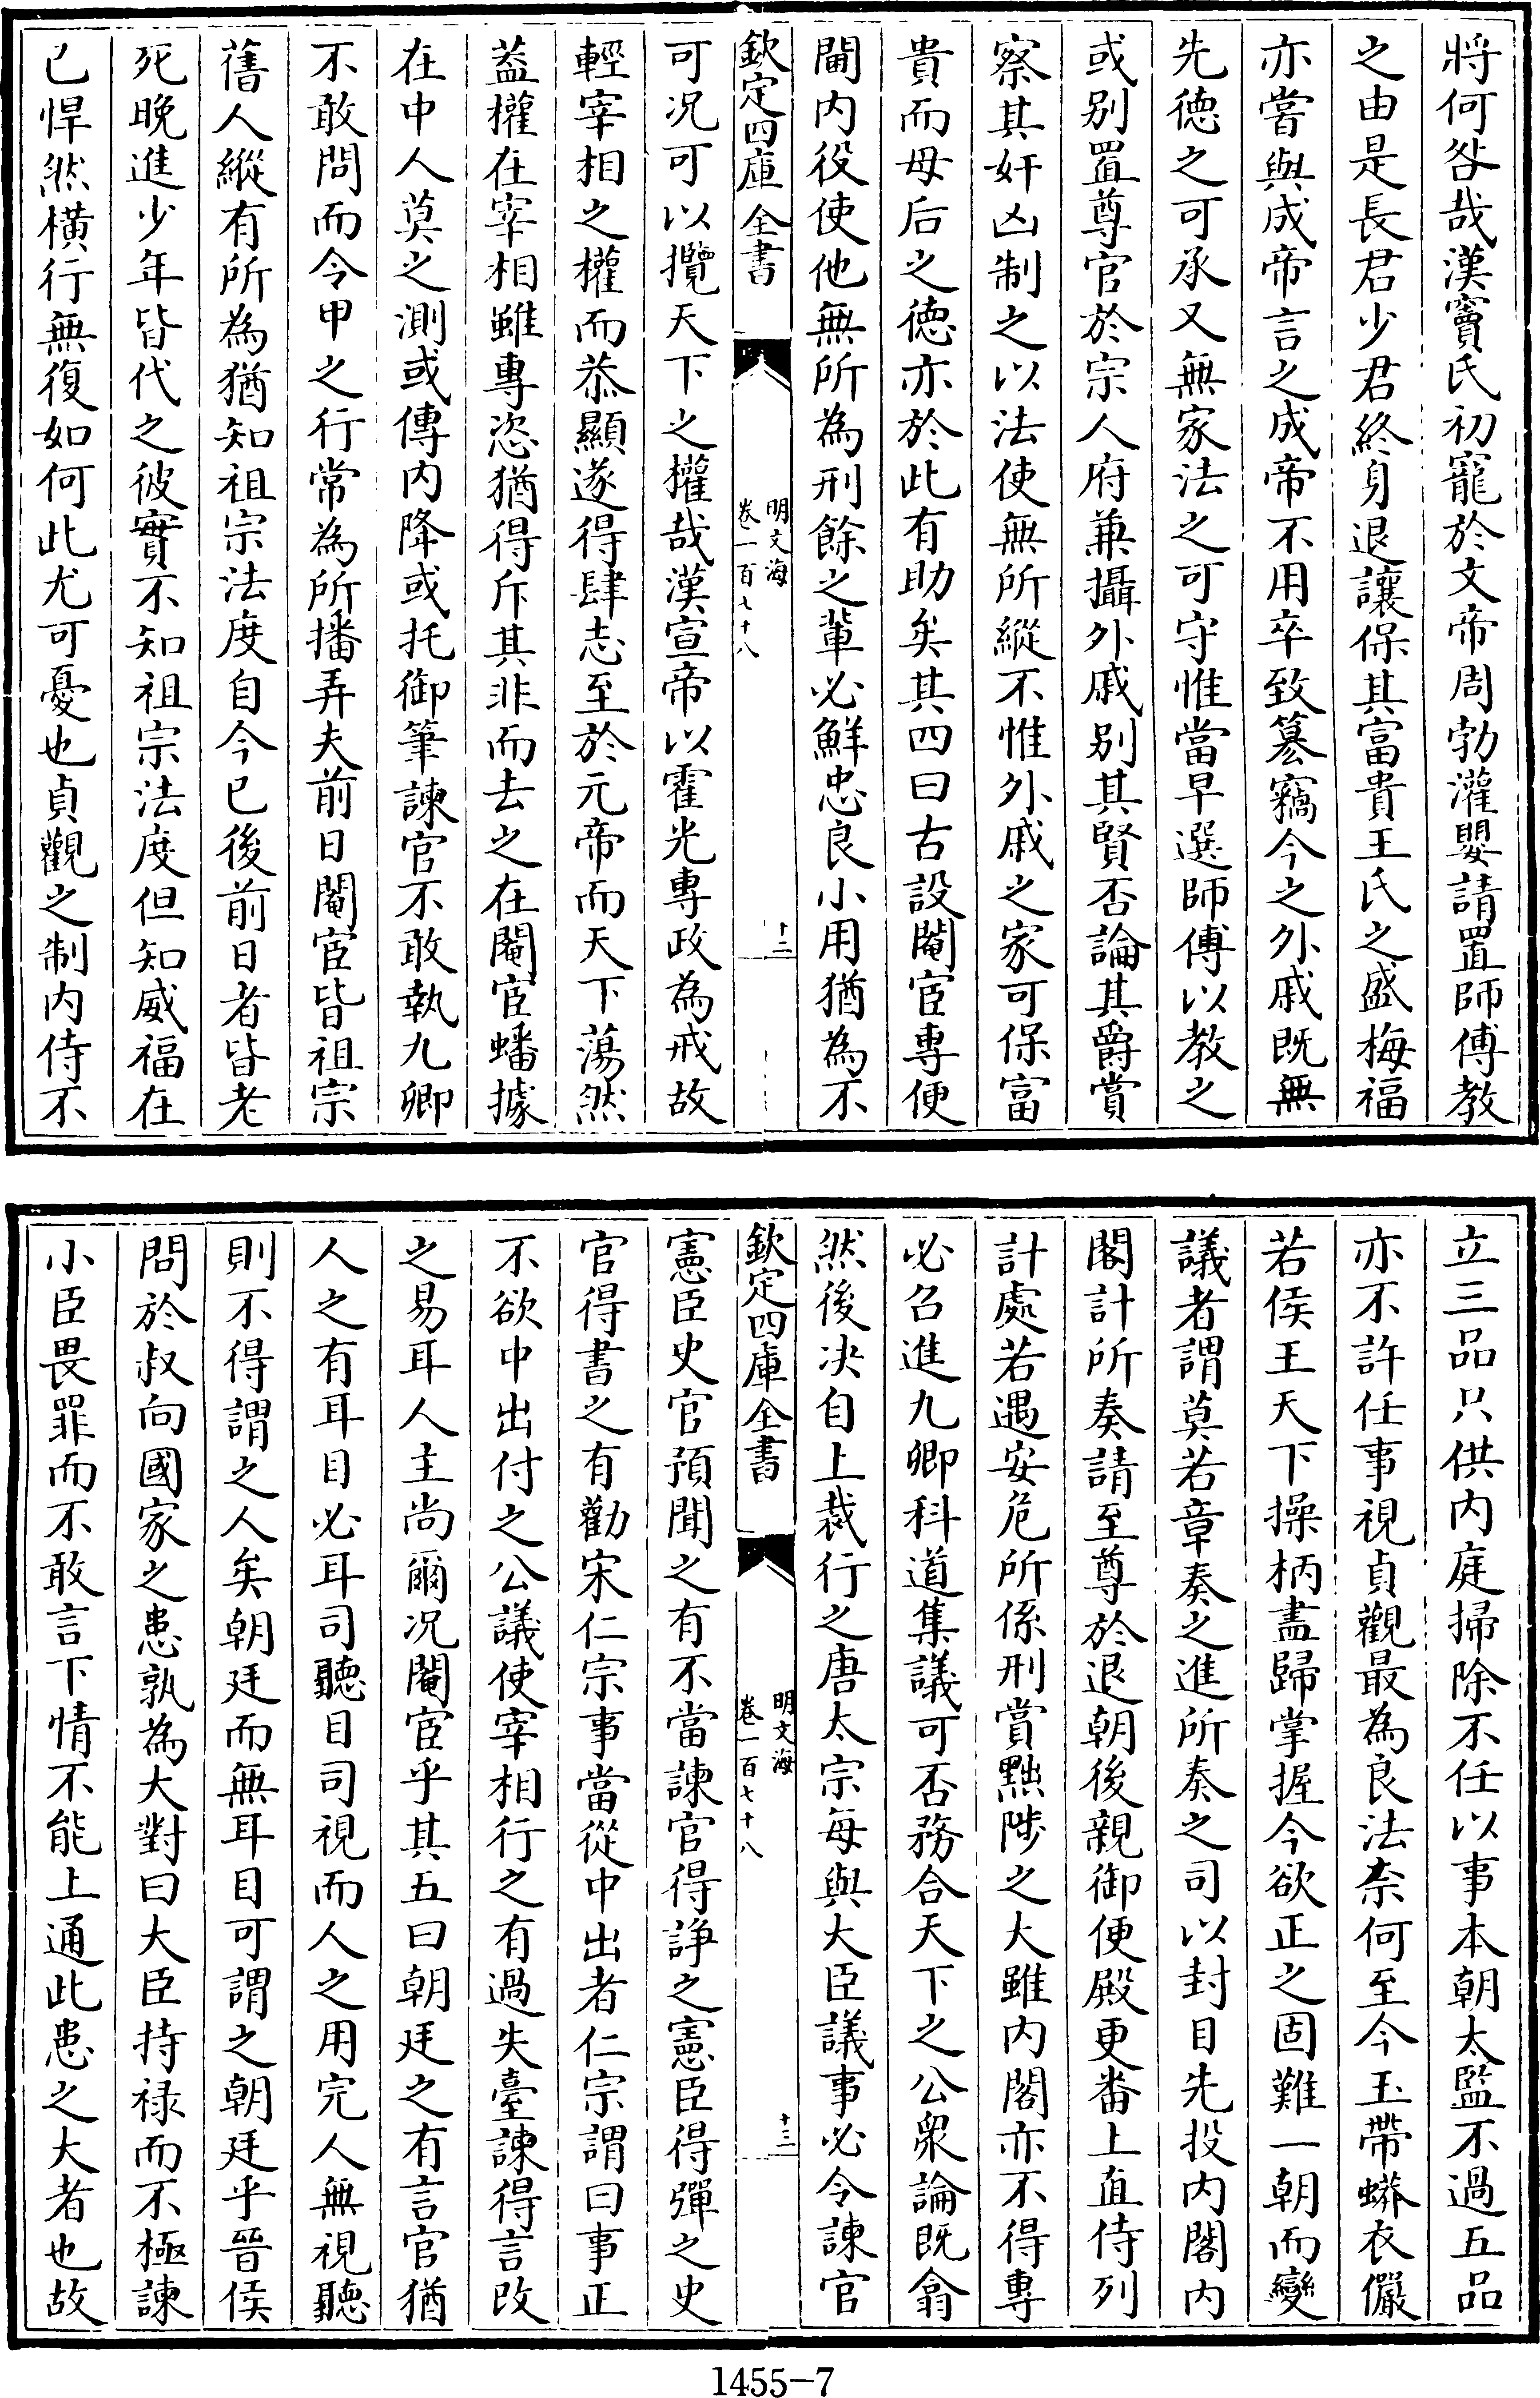 將何咎哉漢竇氏初寵於文帝周勃灌嬰請置師傅教
之由是長君少君終身退讓保其富貴王氏之盛梅福
亦嘗與成帝言之成帝不用卒致簒竊今之外戚既無
先德之可承又無家法之可守惟當早選師傅以教之
或別置尊官於宗人府兼攝外戚別其賢否論其爵賞
察其奸凶制之以法使無所縱不惟外戚之家可保富
貴而母后之德亦於此有助矣其四曰古設閹宦專便
闈内役使他無所為刑餘之輩必鮮忠良小用猶為不
欽定四庫全書
明文海
卷一百七十八
十二
可况可以攬天下之權哉漢宣帝以霍光專政為戒故
輕宰相之權而恭顯遂得肆志至於元帝而天下蕩然
葢權在宰相雖專恣猶得斥其非而去之在閹宦蟠據
在中人莫之測或傳内降或托御筆諫官不敢執九卿
不敢問而令甲之行常為所播弄夫前日閹宦皆祖宗
舊人縱有所為猶知祖宗法度自今已後前日者皆老
死晚進少年皆代之彼實不知祖宗法度但知威福在
已悍然横行無復如何此尤可憂也貞觀之制内侍不
立三品只供内庭掃除不任以事本朝太監不過五品
亦不許任事視貞觀最為良法奈何至今玉帶蟒衣儼
若侯王天下操柄盡歸掌握今欲正之固難一朝而變
議者謂莫若章奏之進所奏之司以封目先投内閣内
閣計所奏請至尊於退朝後親御便殿更番上直侍列
計處若遇安危所係刑賞黜陟之大雖内閣亦不得專
必召進九卿科道集議可否務合天下之公衆論既翕
然後决自上裁行之唐太宗每與大臣議事必令諫官
欽定四庫全書
明文海
卷一百七十八
十三
憲臣史官預聞之有不當諫官得諍之憲臣得彈之史
官得書之有勸宋仁宗事當從中出者仁宗謂曰事正
不欲中出付之公議使宰相行之有過失臺諫得言改
之易耳人主尚爾况閹宦乎其五曰朝廷之有言官猶
人之有耳目必耳司聽目司視而人之用完人無視聽
則不得謂之人矣朝廷而無耳目可謂之朝廷乎晉侯
問於叔向國家之患孰為大對曰大臣持禄而不極諫
小臣畏罪而不敢言下情不能上通此患之大者也故
1455-7